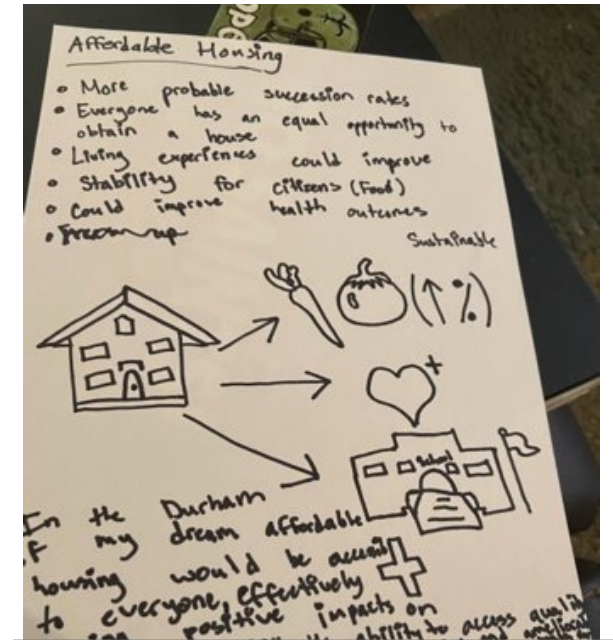 Affordable Housing
• More probable succession rates
• Everyone has an equal opportunity to
obtain a house
• Living experiences could improve
• Stability for citizens (Food)
• Could improve health outcomes
Sustainable
(↑ %)
+
School
In the Durham
my dream affordable
housing would be
to everyone, effectively
positive impacts on
ability to access